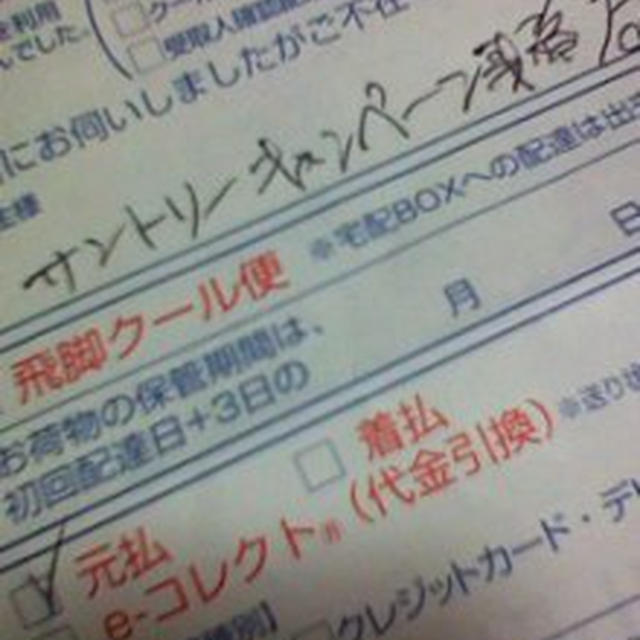 を利用
クール
んでした。
受取人確認配
にお伺いしましたがご不在
主様
サントリー キャンペーン事務局
飛脚クール便
※宅配BOXへの配達は出
お荷物の保管期間は、
初回配達日+3日の
月
日
着払
(代金引換)
※送り状
元払
e-コレクト®
種別】
クレジットカード・デ